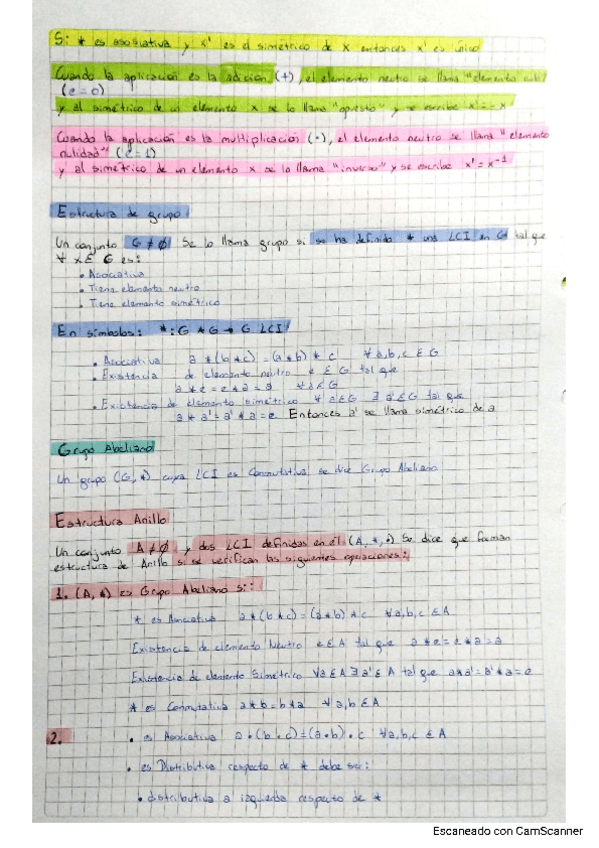 Si * es asosiativa y x' es el simétrico de x entonces x' es único
Cuando la aplicación es la adición (+), el elemento neutro se llama "elemento nulo"
(e = 0)
y al simétrico de un elemento x se lo llama "opuesto" y se escribe x' = -x
Cuando la aplicación es la multiplicación (•), el elemento neutro se llama "elemento
nulidad" (e = 1)
y al simétrico de un elemento x se lo llama "inverso" y se escribe x' = x⁻¹
Estructura de grupo:
Un conjunto G ≠ ∅ se lo llama grupo si se ha definido * una LCI en G tal que
∀ x ∈ G es:
• Asociativa
• Tiene elemento neutro
• Tiene elemento simétrico
En símbolos: *: G * G → G LCI
• Asociativa a * (b * c) = (a * b) * c ∀ a,b,c ∈ G
• Existencia de elemento neutro e ∈ G tal que
a * e = e * a = a ∀ a ∈ G
• Existencia de elemento simétrico ∀ a ∈ G ∃ a' ∈ G tal que
a * a' = a' * a = e Entonces a' se llama simétrico de a
Grupo Abeliano
Un grupo (G, *) cuya LCI es Conmutativa se dice Grupo Abeliano
Estructura Anillo
Un conjunto A ≠ ∅ y dos LCI definidas en él (A, *, •) Se dice que forman
estructura de Anillo si se verifican las siguientes operaciones:
1. (A, *) es Grupo Abeliano si:
* es Asociativa a * (b * c) = (a * b) * c ∀ a,b,c ∈ A
Existencia de elemento Neutro e ∈ A tal que a * e = e * a = a
Existencia de elemento Simétrico ∀ a ∈ A ∃ a' ∈ A tal que a * a' = a' * a = e
* es Conmutativa a * b = b * a ∀ a,b ∈ A
2. • es Asociativa a • (b • c) = (a • b) • c ∀ a,b,c ∈ A
• es Distributiva respecto de * debe ser:
• distributiva a izquierda respecto de *
Escaneado con CamScanner